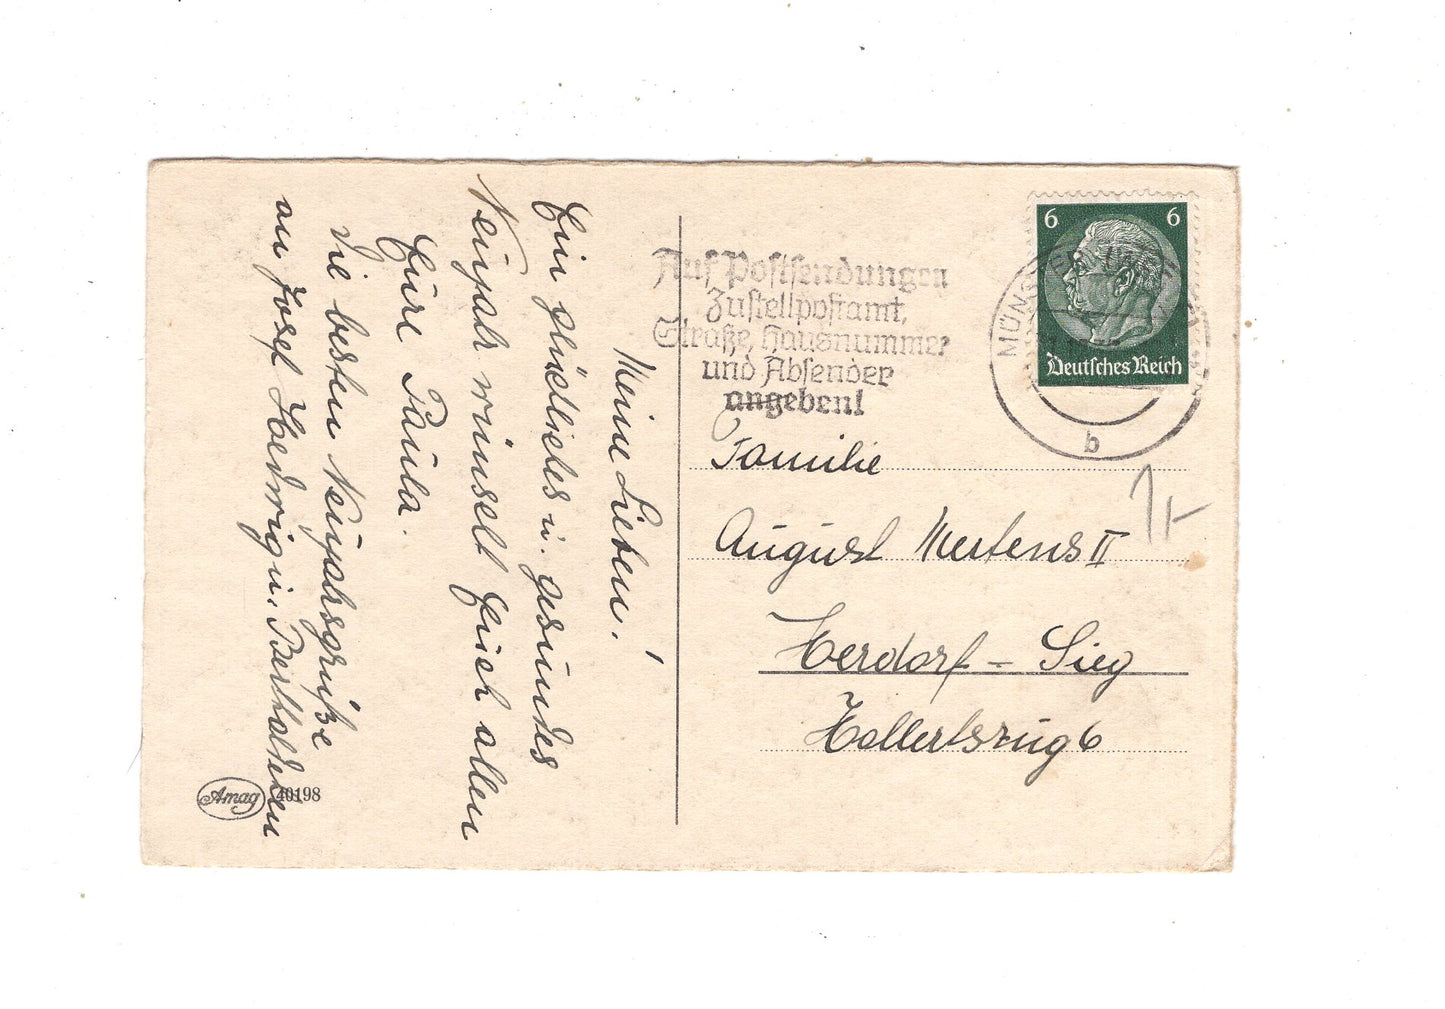 Meine Lieben!
Ein glückliches u. gesundes
Neujahr wünscht Euch allen
Eure Paula.
Die besten Neujahrsgrüße
an Josef Hedwig u. Bertholden
Amag 40198
Auf Postsendungen
Zustellpostamt,
Straße, Hausnummer
und Absender
angeben!
6 6
Deutsches Reich
b
Familie
August Mertens II
Herdorf - Sieg
Hollertszug 6